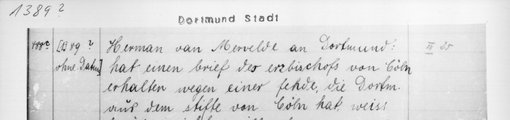 1389?
Dortmund Stadt
[1389?
ohne Datum]
Herman van Mervelde an Dortmund:
hat einen brief des erzbischofs von Cöln
erhalten wegen einer fehde, die Dortm.
aus dem stifte von Cöln hat, weiss